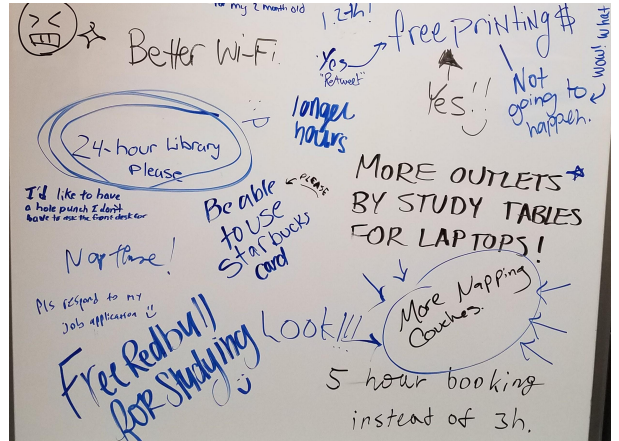 for my 2 month old
1.2th!
free printing$
Wow! what
Better Wi-Fi
Yes
"Retweet"
Yes!!
Not
going to
happen.
longer
hours
24-hour Library
Please
I'd like to have
a hole punch I don't
have to ask the front desk for
Be able
to use
Starbucks
card
PLEASE
MORE OUTLETS
BY STUDY TABLES
FOR LAPTOPS!
Pls respond to my
job application
Free Redbull
for Studying
LOOK!!!
More Napping
Couches.
5 hour booking
instead of 3h.